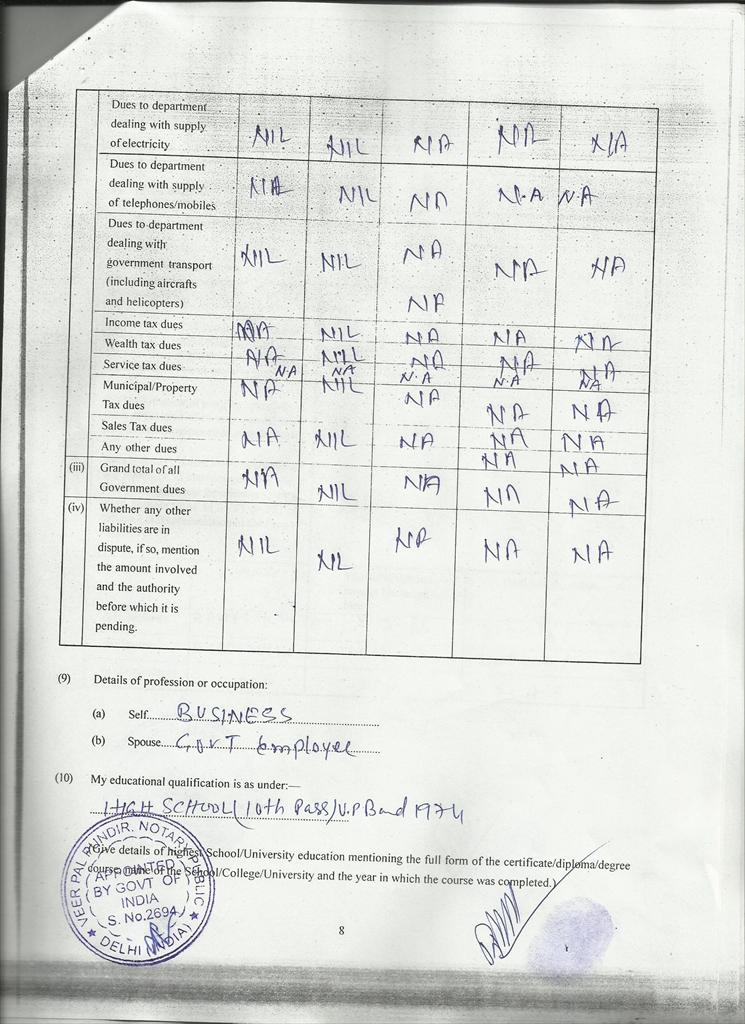 Dues to department
dealing with supply
of electricity NIL NIL NA NA N/A
Dues to department
dealing with supply
of telephones/mobiles N/A NIL NA N.A N.A
Dues to department
dealing with
government transport
(including aircrafts
and helicopters) NIL NIL NA NA NA
NA
Income tax dues NA NIL NA NA NA
Wealth tax dues N/A NILL NA NA NA
Service tax dues NA NA N.A N.A NA
Municipal/Property
Tax dues NA NIL NA NA NA
Sales Tax dues N/A NIL NA NA NA
Any other dues NA NA
(iii) Grand total of all
Government dues NA NIL N/A NA NA
(iv) Whether any other
liabilities are in
dispute, if so, mention
the amount involved
and the authority
before which it is
pending. NIL NIL NA NA NA
(9) Details of profession or occupation:
(a) Self BUSINESS
(b) Spouse Govt Employee
(10) My educational qualification is as under:—
HIGH SCHOOL (10th Pass) U.P Board 1974
(Give details of highest School/University education mentioning the full form of the certificate/diploma/degree
course, name of the School/College/University and the year in which the course was completed.)
VEER PAL PUNDIR. NOTARY PUBLIC
APPOINTED
BY GOVT OF
INDIA
S. No.2694
DELHI (INDIA)
8